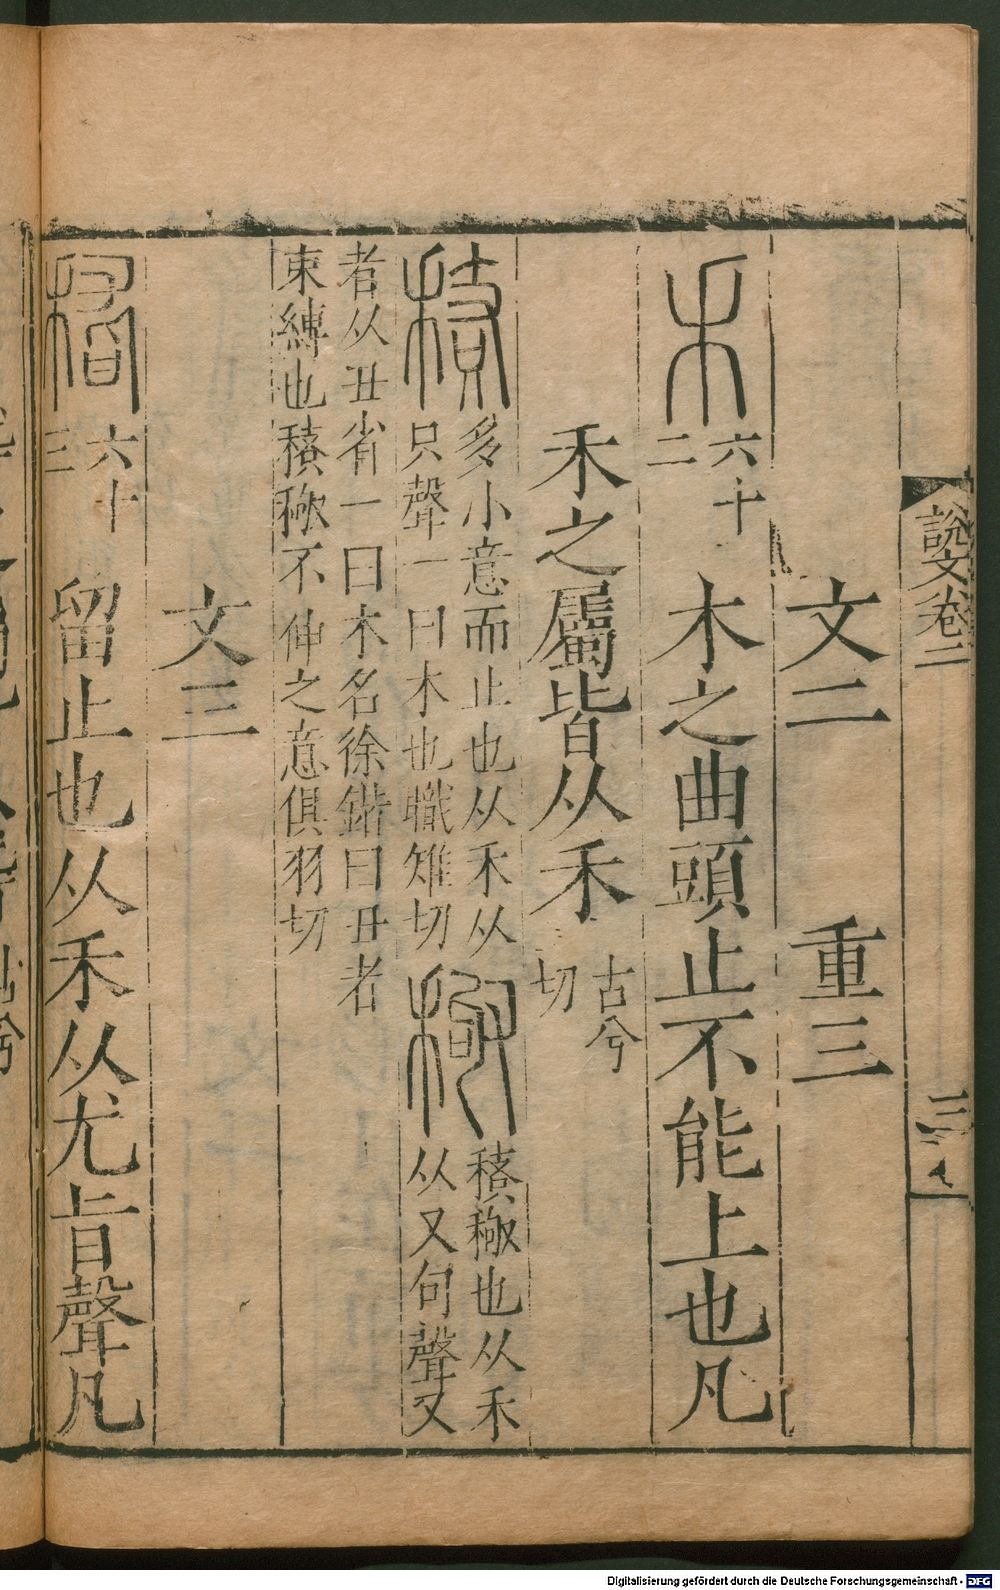 說文卷二 三
文二 重三
禾 六十二 木之曲頭止不能上也凡
禾之屬皆从禾 古兮切
多小意而止也从禾从
只聲一曰木也職雉切
也从禾
从又句聲又
者从丑省一曰木名徐鍇曰丑者
束縛也不伸之意俱羽切
文三
稽 六十三 留止也从禾从尤旨聲凡
Digitalisierung gefördert durch die Deutsche Forschungsgemeinschaft - DFG